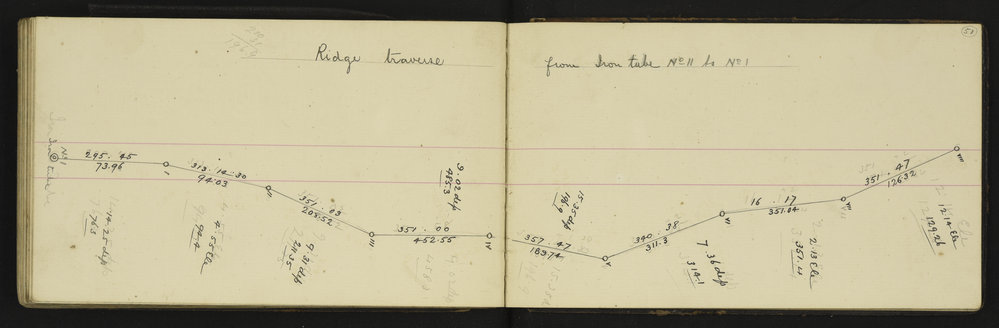 50
Ridge traverse from Iron tube No 11 to No 1
No 1
295 . 45
73.96
I
313 . 14 . 30
94.03
II
351 . 03
208.52
III
351 . 00
452.55
IV
357 . 47
183.74
V
340 . 38
311.3
VI
16 . 17
351.04
VII
351 . 47
126.32
VIII
14.25 dep
4.55 Ele
94.4
9.31 dep
211.35
9.02 dep
485.3
15.35 dep
7 36 dep
314.1
2.13 Ele
351.4
12.14 Ele
129.26